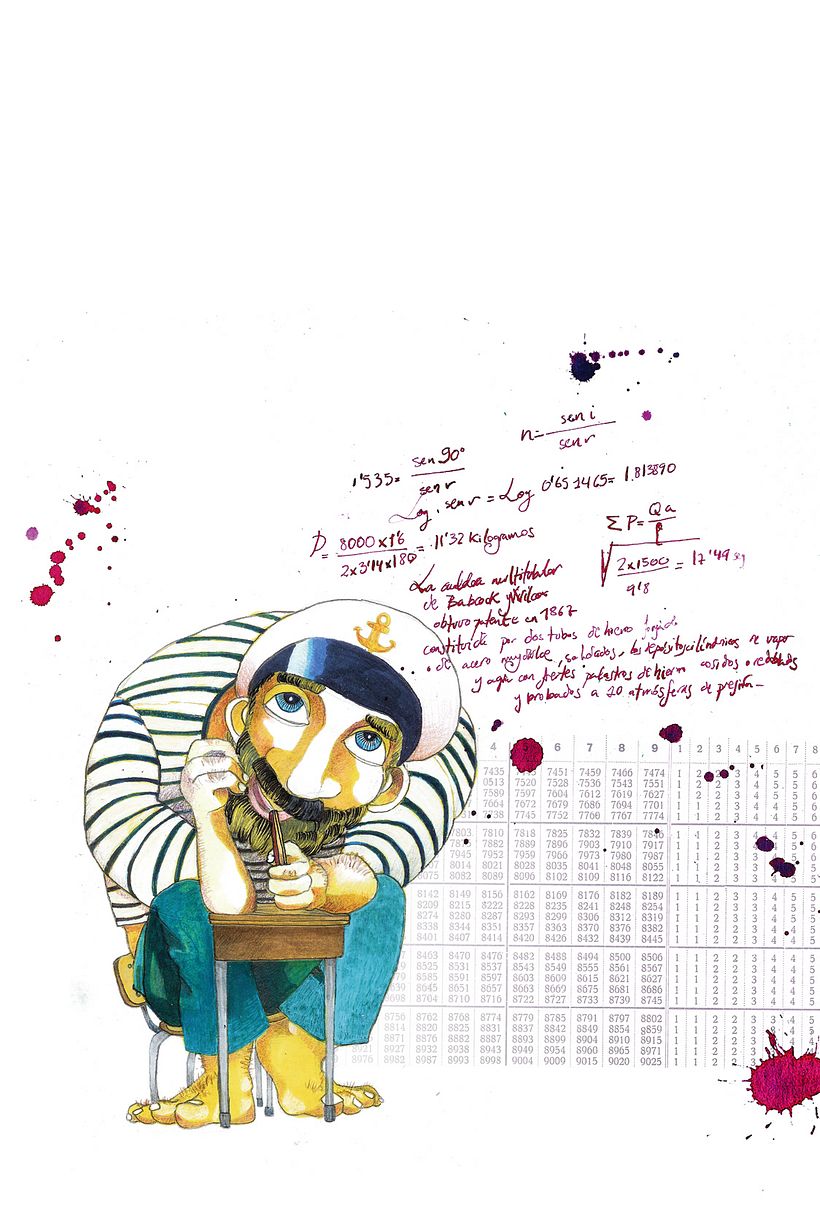 n= sen i
sen r
1'535= sen 90°
sen r
Log. sen r = Log 0'651465= 1.813890
D= 8000 x 1'6 = 11'32 Kilogramos
2x3'14x180
ΣP= Qa
2x1500 = 17'49
9'8
La multitubular
de Babcock y Wilcox
obtuvo patente en 1867
constituida por dos tubos de hierro forjado
de acero soldados, los depositos cilíndricos de vapor
y agua con fuertes de hierro cosidos
y probados a 20 atmósferas de presión
4 5 6 7 8 9 1 2 3 4 5 6 7 8
7435 7451 7459 7466 7474 1 2 2 3 4 5 5 6
0513 7520 7528 7536 7543 7551 1 2 2 3 4 5 5 6
7589 7597 7604 7612 7619 7627 1 2 2 3 4 5 5 6
7664 7672 7679 7686 7694 7701 1 1 2 3 4 4 5 6
7745 7752 7760 7767 7774 1 1 2 3 4 4 5 6
7803 7810 7818 7825 7832 7839 1 1 2 3 4 4 5 6
7882 7889 7896 7903 7910 7917 1 1 2 3 4 5 6
7945 7952 7959 7966 7973 7980 7987 1 1 2 3 3 5 6
8014 8021 8028 8035 8041 8048 8055 1 1 2 3 3 5 5
8075 8082 8089 8096 8102 8109 8116 8122 1 1 2 3 3 5 5
8142 8149 8156 8162 8169 8176 8182 8189 1 1 2 3 3 4 5 5
8209 8215 8222 8228 8235 8241 8248 8254 1 1 2 3 3 4 5 5
8274 8280 8287 8293 8299 8306 8312 8319 1 1 2 3 3 4 5 5
8338 8344 8351 8357 8363 8370 8376 8382 1 1 2 3 3 4 4 5
8401 8407 8414 8420 8426 8432 8439 8445 1 1 2 3 3 4 4 5
8463 8470 8476 8482 8488 8494 8500 8506 1 1 2 2 3 4 4 5
8525 8531 8537 8543 8549 8555 8561 8567 1 1 2 2 3 4 4 5
8585 8591 8597 8603 8609 8615 8621 8627 1 1 2 2 3 4 4 5
8645 8651 8657 8663 8669 8675 8681 8686 1 1 2 2 3 4 4 5
8704 8710 8716 8722 8727 8733 8739 8745 1 1 2 2 3 4 4 5
8756 8762 8768 8774 8779 8785 8791 8797 8802 1 1 2 2 3 3 4 5
8814 8820 8825 8831 8837 8842 8848 8854 8859 1 1 2 2 3 4 5
8871 8876 8882 8887 8893 8899 8904 8910 8915 1 1 2 2 3
8921 8927 8932 8938 8943 8949 8954 8960 8965 8971 1 1 2 2
8976 8982 8987 8993 8998 9004 9009 9015 9020 9025 1 1 2 2